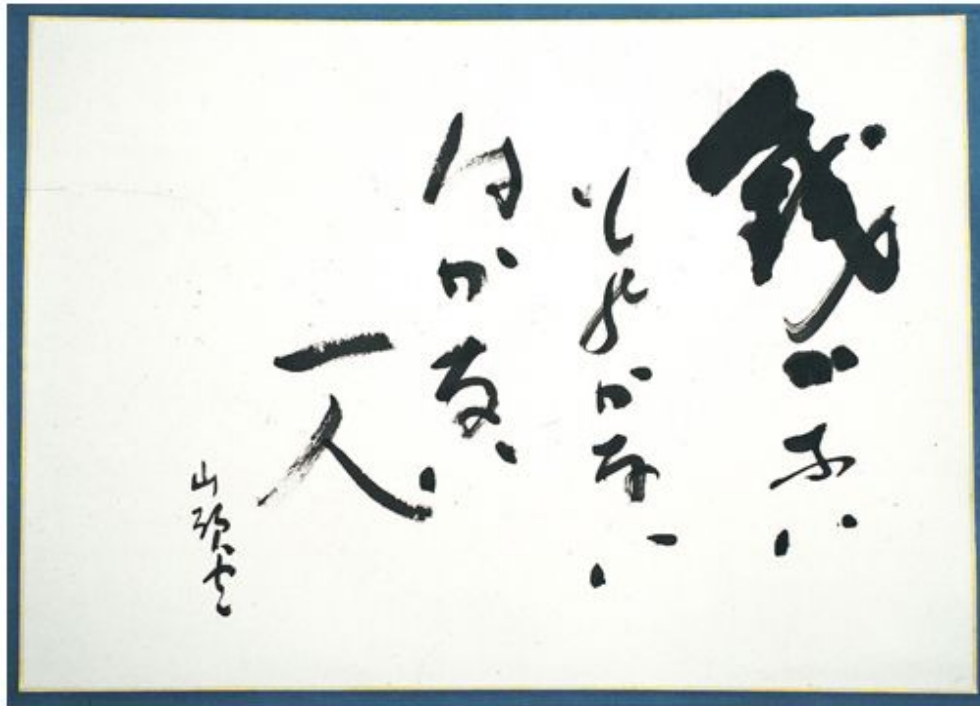 銭がない
ものがない
はがない
一人
山頭火